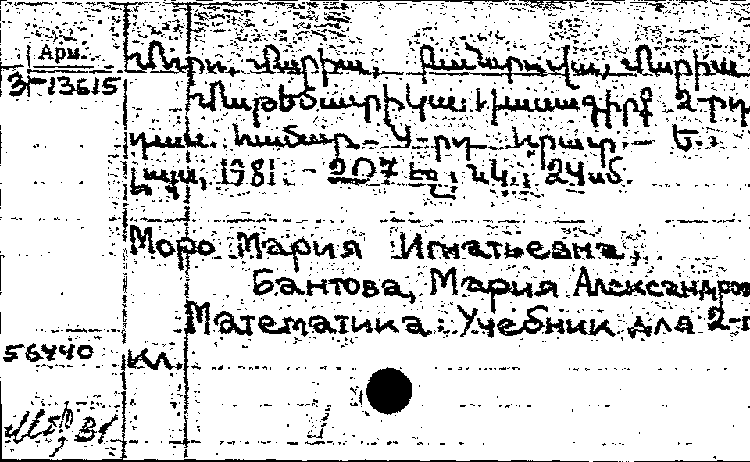 Арм.
3-13615
Մորո, Մարիա, Բանտովա, Մարիա
Մաթեմատիկա: Դասագիրք 2-րդ
դաս. համար.- 4-րդ հրատ.- Ե.:
Լույս, 1981.- 207 էջ; նկ.; 24 սմ.
Моро Мария Игнатьевна,
Бантова, Мария Александров
Математика: Учебник для 2-г
56440 кл.